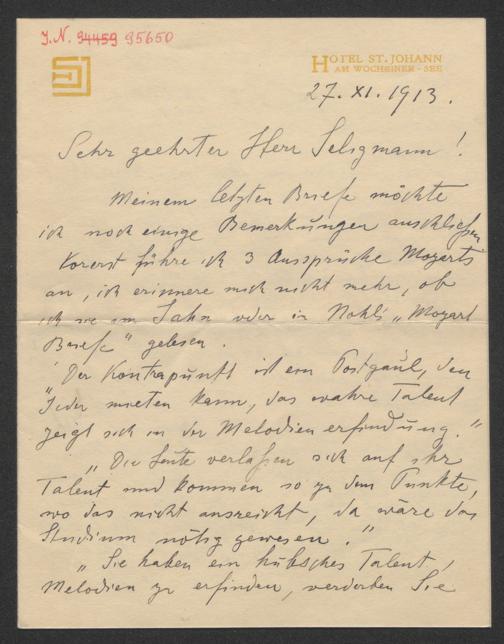 J.N. 94459 95650
HOTEL ST. JOHANN
AM WOCHEINER-SEE
27. XI. 1913.
Sehr geehrter Herr Seligmann!
Meinem letzten Briefe möchte
ich noch einige Bemerkungen anschließen
Vorerst führe ich 3 Aussprüche Mozarts
an, ich erinnere mich nicht mehr, ob
ich sie im Jahn oder in Nohls „Mozart
Briefe" gelesen.
„Der Kontrapunkt ist ein Postgaul, den
Jeder mieten kann, das wahre Talent
zeigt sich in der Melodien erfindung."
„Die Leute verlaßen sich auf ihr
Talent und kommen so zu dem Punkte,
wo das nicht ausreicht, da wäre das
Studium nötig gewesen."
„Sie haben ein hübsches Talent,
Melodien zu erfinden, verderben Sie